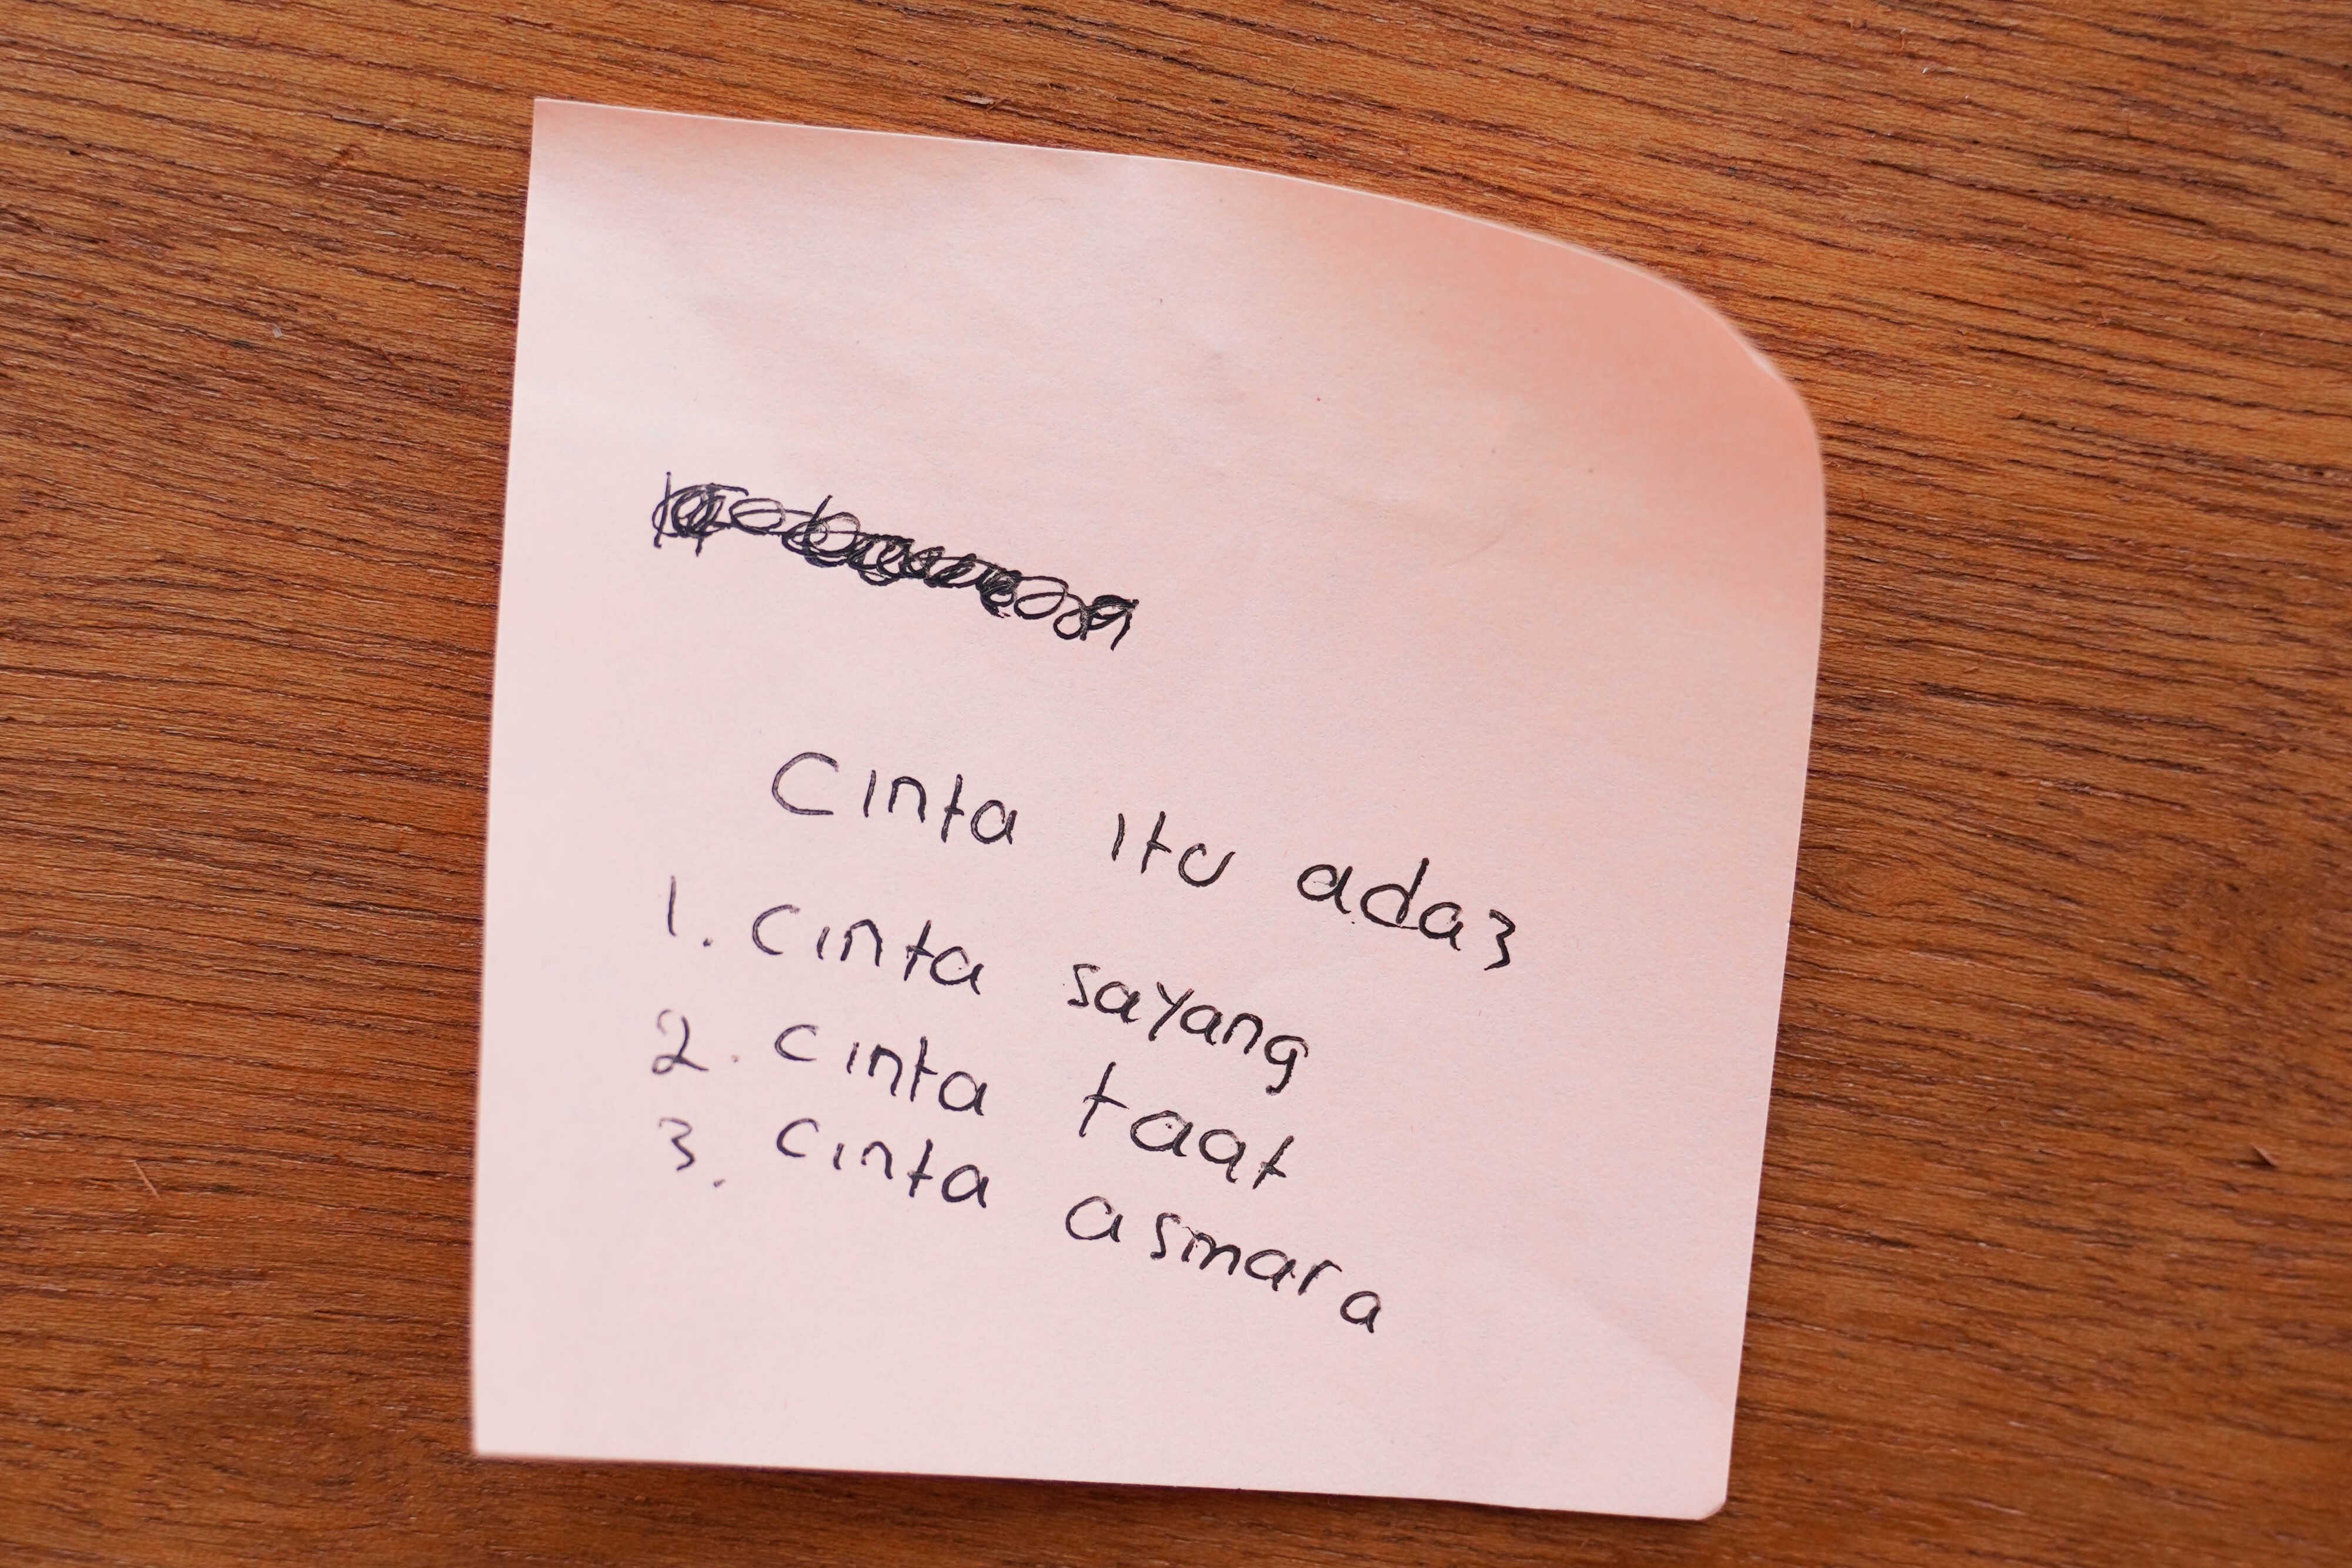 Cinta itu ada 3
1. cinta sayang
2. cinta taat
3. cinta asmara